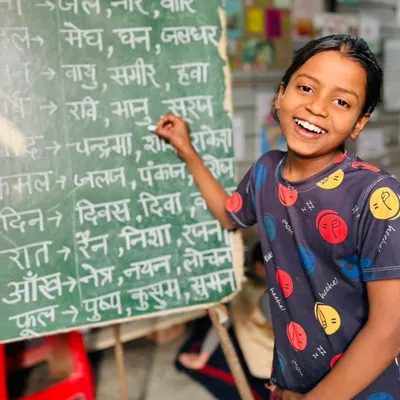 जल → जल, नीर, वारि
→ मेघ, घन, जलधर
→ वायु, समीर, हवा
→ रवि, भानु, सूरज
→ चन्द्रमा,
कमल → जलज, पंकज,
दिन → दिवस, दिवा,
रात → रैन, निशा, रजनी
आँख → नेत्र, नयन, लोचन
फूल → पुष्प, कुसुम, सुमन
heehe!
heehe!